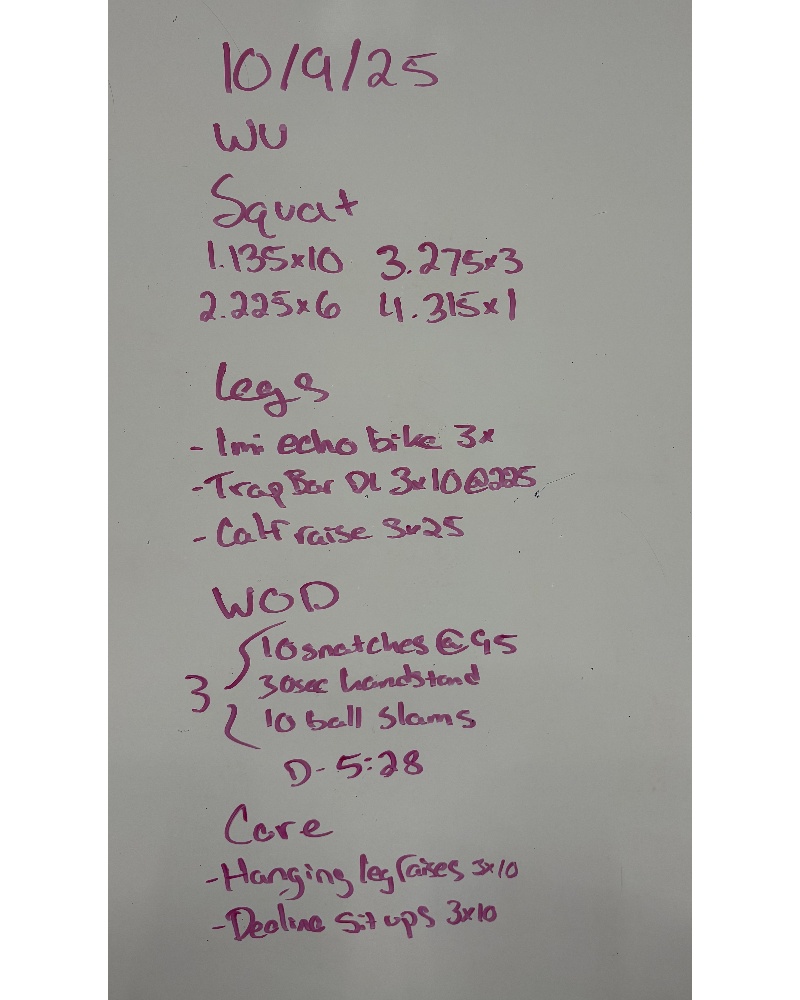 10/9/25
WU
Squat
1. 135x10 3. 275x3
2. 225x6 4. 315x1
Legs
- 1mi echo bike 3x
- Trap Bar DL 3x10 @225
- Calf raise 3x25
WOD
10 snatches @ 95
30sec handstand
3
10 ball slams
D- 5:28
Core
- Hanging leg raises 3x10
- Decline Sit ups 3x10